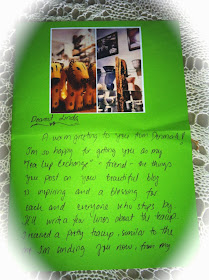 Dearest Linda
A warm greeting to you from Denmark!
I'm so happy for getting you as my
"Tea Cup Exchange" - friend - the things
you post on your beautiful blog
is inspiring and a blessing for
each and everyone who stops by
I'll write a few lines about the teacup
I missed a pretty teacup similar to the
I'm sending you now, from my